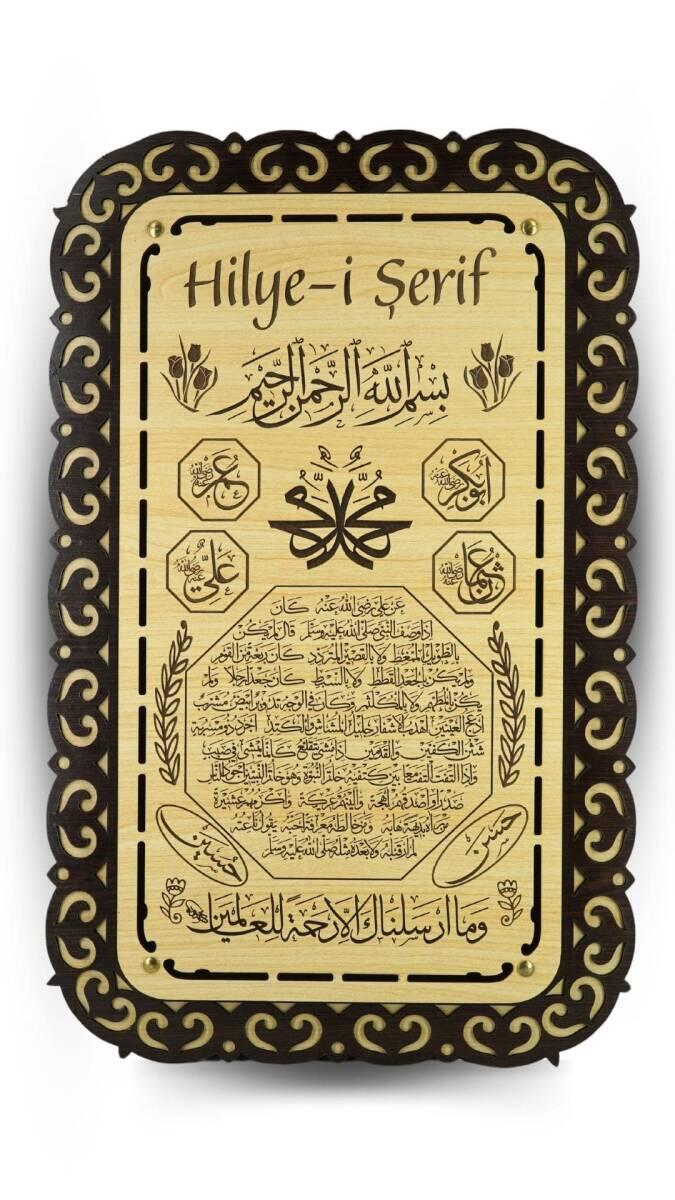 Hilye-i Şerif
بِسْمِ اللهِ الرَّحْمٰنِ الرَّحِيمِ
ابُوبَكْر رضي الله عنه
عُمَر رضي الله عنه
مُحَمَّد
عُثْمَان رضي الله عنه
عَلِيّ رضي الله عنه
عَنْ عَلِيٍّ رَضِيَ اللهُ عَنْهُ كَانَ
اِذَا وَصَفَ النَّبِيَّ صَلَّى اللهُ عَلَيْهِ وَسَلَّمَ قَالَ لَمْ يَكُنْ
بِالطَّوِيلِ الْمُمَّغِطِ وَلَا بِالْقَصِيرِ الْمُتَرَدِّدِ كَانَ رَبْعَةً مِنَ الْقَوْمِ
وَلَمْ يَكُنْ بِالْجَعْدِ الْقَطَطِ وَلَا بِالسَّبْطِ كَانَ جَعْدًا رَجِلًا وَلَمْ
يَكُنْ بِالْمُطَهَّمِ وَلَا بِالْمُكَلْثَمِ وَكَانَ فِي الْوَجْهِ تَدْوِيرٌ اَبْيَضُ مُشْرَبٌ
اَدْعَجُ الْعَيْنَيْنِ اَهْدَبُ الْاَشْفَارِ جَلِيلُ الْمُشَاشِ وَالْكَتَدِ اَجْرَدُ ذُو مَسْرُبَةٍ
شَثْنُ الْكَفَّيْنِ وَالْقَدَمَيْنِ اِذَا مَشَى يَتَقَلَّعُ كَاَنَّمَا يَمْشِي فِي صَبَبٍ
وَاِذَا الْتَفَتَ الْتَفَتَ مَعًا بَيْنَ كَتِفَيْهِ خَاتَمُ النُّبُوَّةِ وَهُوَ خَاتَمُ النَّبِيِّينَ اَجْوَدُ النَّاسِ
صَدْرًا وَاَصْدَقُهُمْ لَهْجَةً وَاَلْيَنُهُمْ عَرِيكَةً وَاَكْرَمُهُمْ عَشِيرَةً
مَنْ رَآهُ بَدِيهَةً هَابَهُ وَمَنْ خَالَطَهُ مَعْرِفَةً اَحَبَّهُ يَقُولُ نَاعِتُهُ
لَمْ اَرَ قَبْلَهُ وَلَا بَعْدَهُ مِثْلَهُ صَلَّى اللهُ عَلَيْهِ وَسَلَّمَ
حَسَنْ
حُسَيْن
وَمَا اَرْسَلْنَاكَ اِلَّا رَحْمَةً لِلْعَالَمِينَ